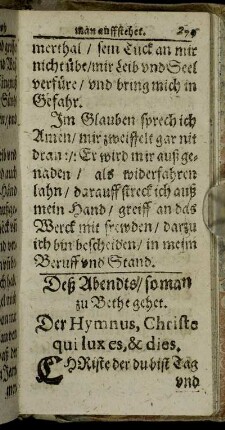 man auffstehet.
merthal / sein Tuck an mir
nicht übe/mir Leib vnd Seel
verfüre / vnd bring mich in
Gefahr.
Im Glauben sprech ich
Amen/ mir zweiffelt gar nit
dran :/: Er wird mir auß ge-
naden / als widerfahren
lahn / darauff streck ich auß
mein Hand / greiff an das
Werck mit frewden / darzu
ich bin bescheiden / in meim
Beruff vnd Stand.
Deß Abendts/ so man
zu Bethe gehet.
Der Hymnus, Christe
qui lux es, & dies.
CHRiste der du bist Tag
vnd